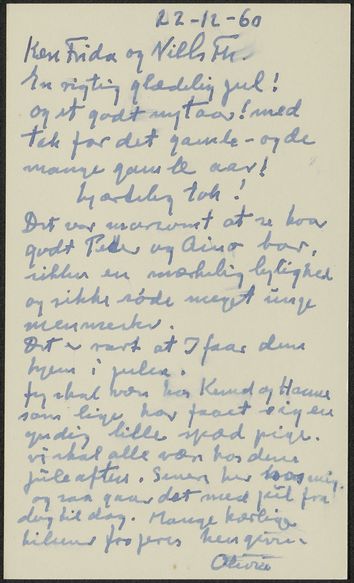 22-12-60
Kære Frida og Niels Th.
En rigtig glædelig jul!
og et godt nytaar! med
tak for det gamle - og de
mange gamle aar!
hjærtelig tak!
Det var morsomt at se hvor
godt Peder og Aino bor,
sikken en mærkelig lejlighed
og sikke søde meget unge
mennesker.
Det er rart at I faar dem
hjem i julen.
Jeg skal være hos Knud og Hanne
som lige har faaet sig en
yndig lille spæd pige.
Vi skal alle være hos dem
juleaften. Senere her hos mig.
og saa gaar det med jul fra
dag til dag. Mange kærlige
hilsner fra jeres hengivne
Olivia